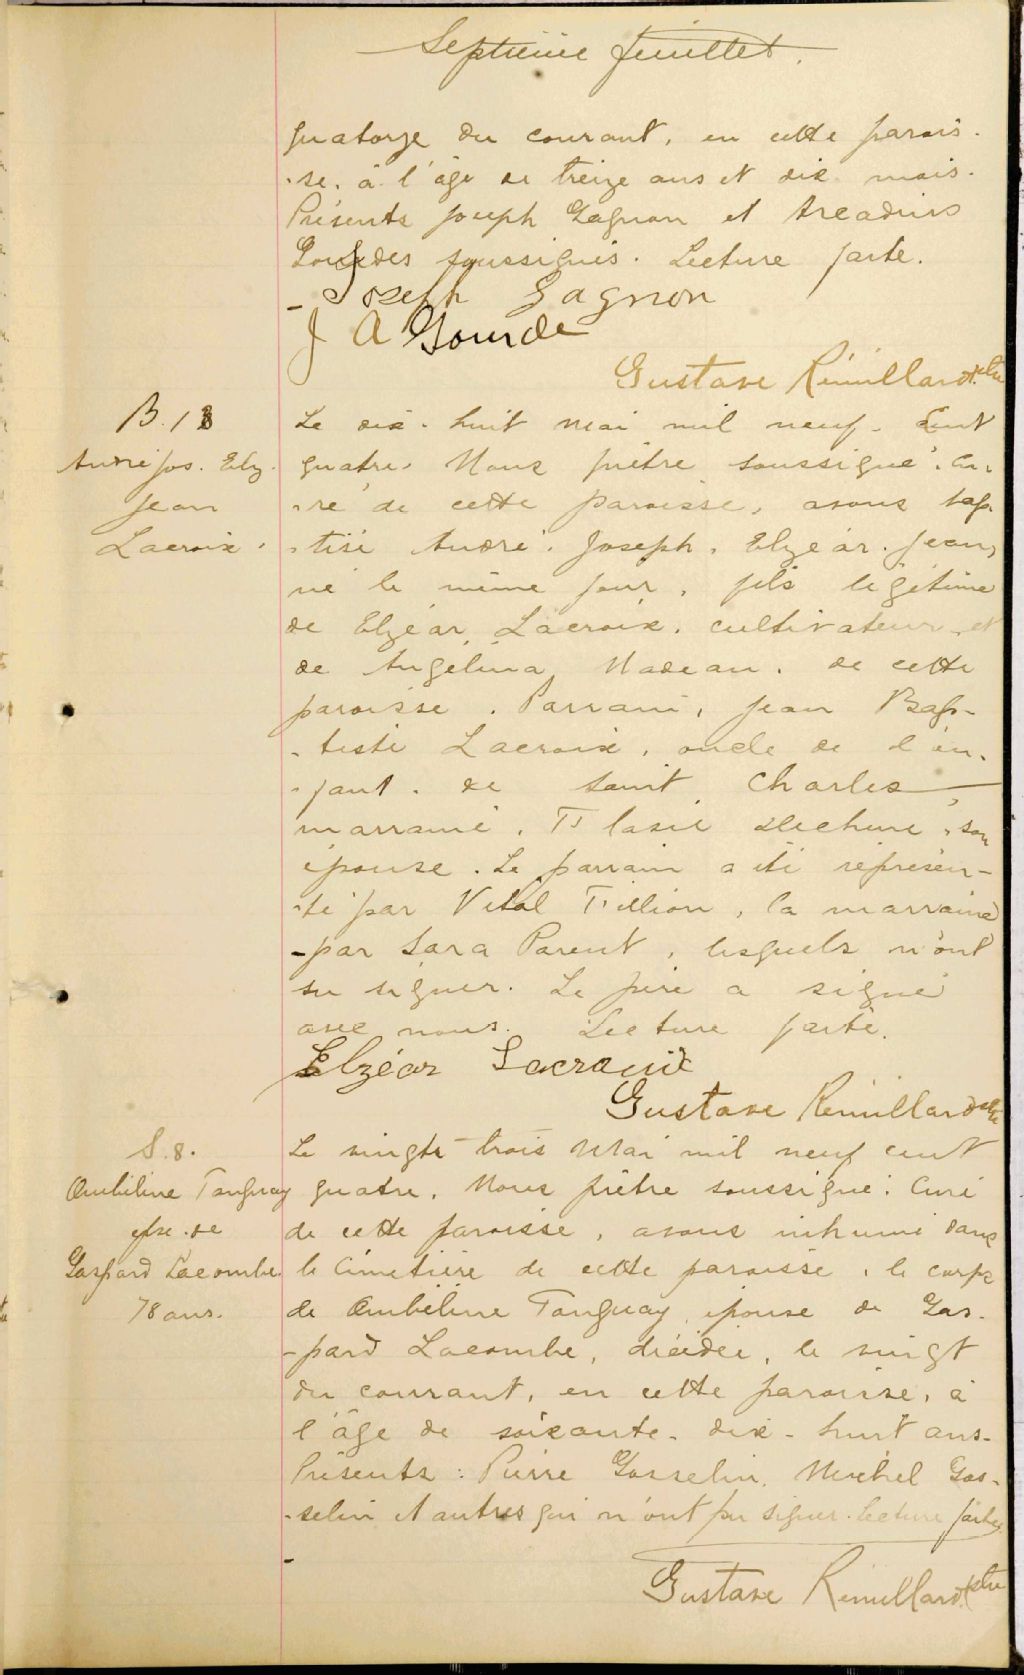 Septième feuillet.
quatorze du courant, en cette parois-
-se, à l'âge de treize ans et dix mois.
Présents Joseph Gagnon et Arcadius
Gourdes soussignés. Lecture faite.
Joseph Gagnon
J A Gourde
Gustave Rémillard ptre
B. 13
André Jos. Elz.
Jean
Lacroix.
Le dix-huit Mai mil neuf-cent
quatre, Nous prêtre soussigné, cu-
-ré de cette paroisse, avons bap-
-tisé André, Joseph, Elzéar, Jean,
né le même jour, fils légitime
de Elzéar Lacroix, cultivateur et
de Angélina Nadeau, de cette
paroisse. Parrain, Jean Bap-
-tiste Lacroix, oncle de l'en-
-fant, de Saint Charles,
marraine, Flasie Déchène, son
épouse. Le parrain a été représen-
-té par Vital Fillion, la marraine
-par Sara Parent, lesquels n'ont
su signer. Le père a signé
avec nous. Lecture faite.
Elzéar Lacroix
Gustave Rémillard ptre
S. 8.
Ombéline Tanguay
épse. de
Gaspard Lacombe
78 ans.
Le vingt-trois Mai mil neuf cent
quatre, Nous prêtre soussigné, Curé
de cette paroisse, avons inhumé dans
le Cimetière de cette paroisse, le corps
de Ombéline Tanguay, épouse de Gas-
-pard Lacombe, décédée, le vingt
du courant, en cette paroisse, à
l'âge de soixante-dix-huit ans.
Présents: Pierre Gosselin, Michel Gos-
-selin et autres qui n'ont pu signer. Lecture faite.
Gustave Rémillard ptre